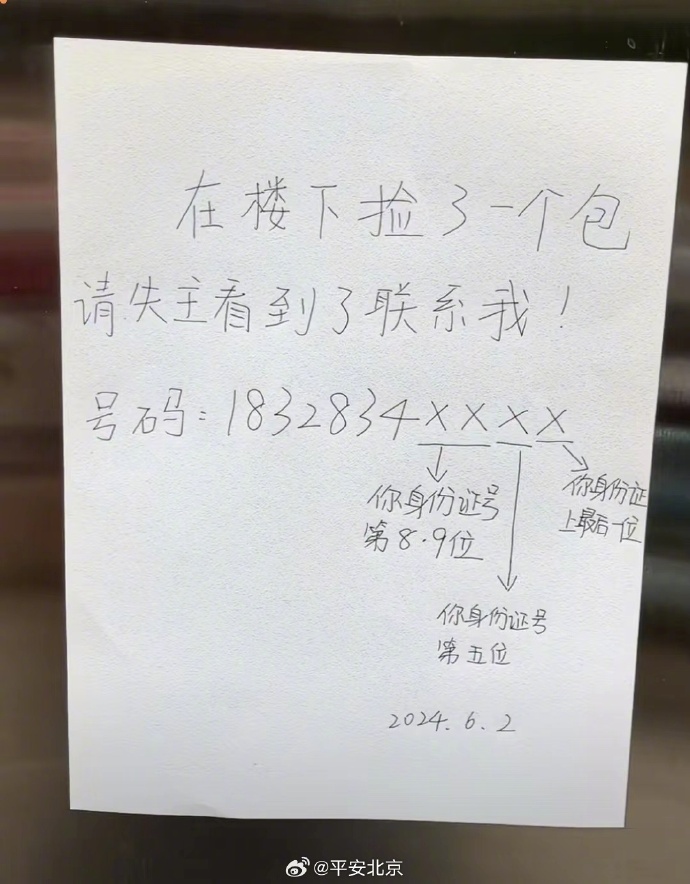 在楼下捡了一个包
请失主看到了联系我！
号码：1832834XXXX
你身份证号
第8.9位
你身份证
上最后一位
你身份证号
第五位
2024.6.2
@平安北京